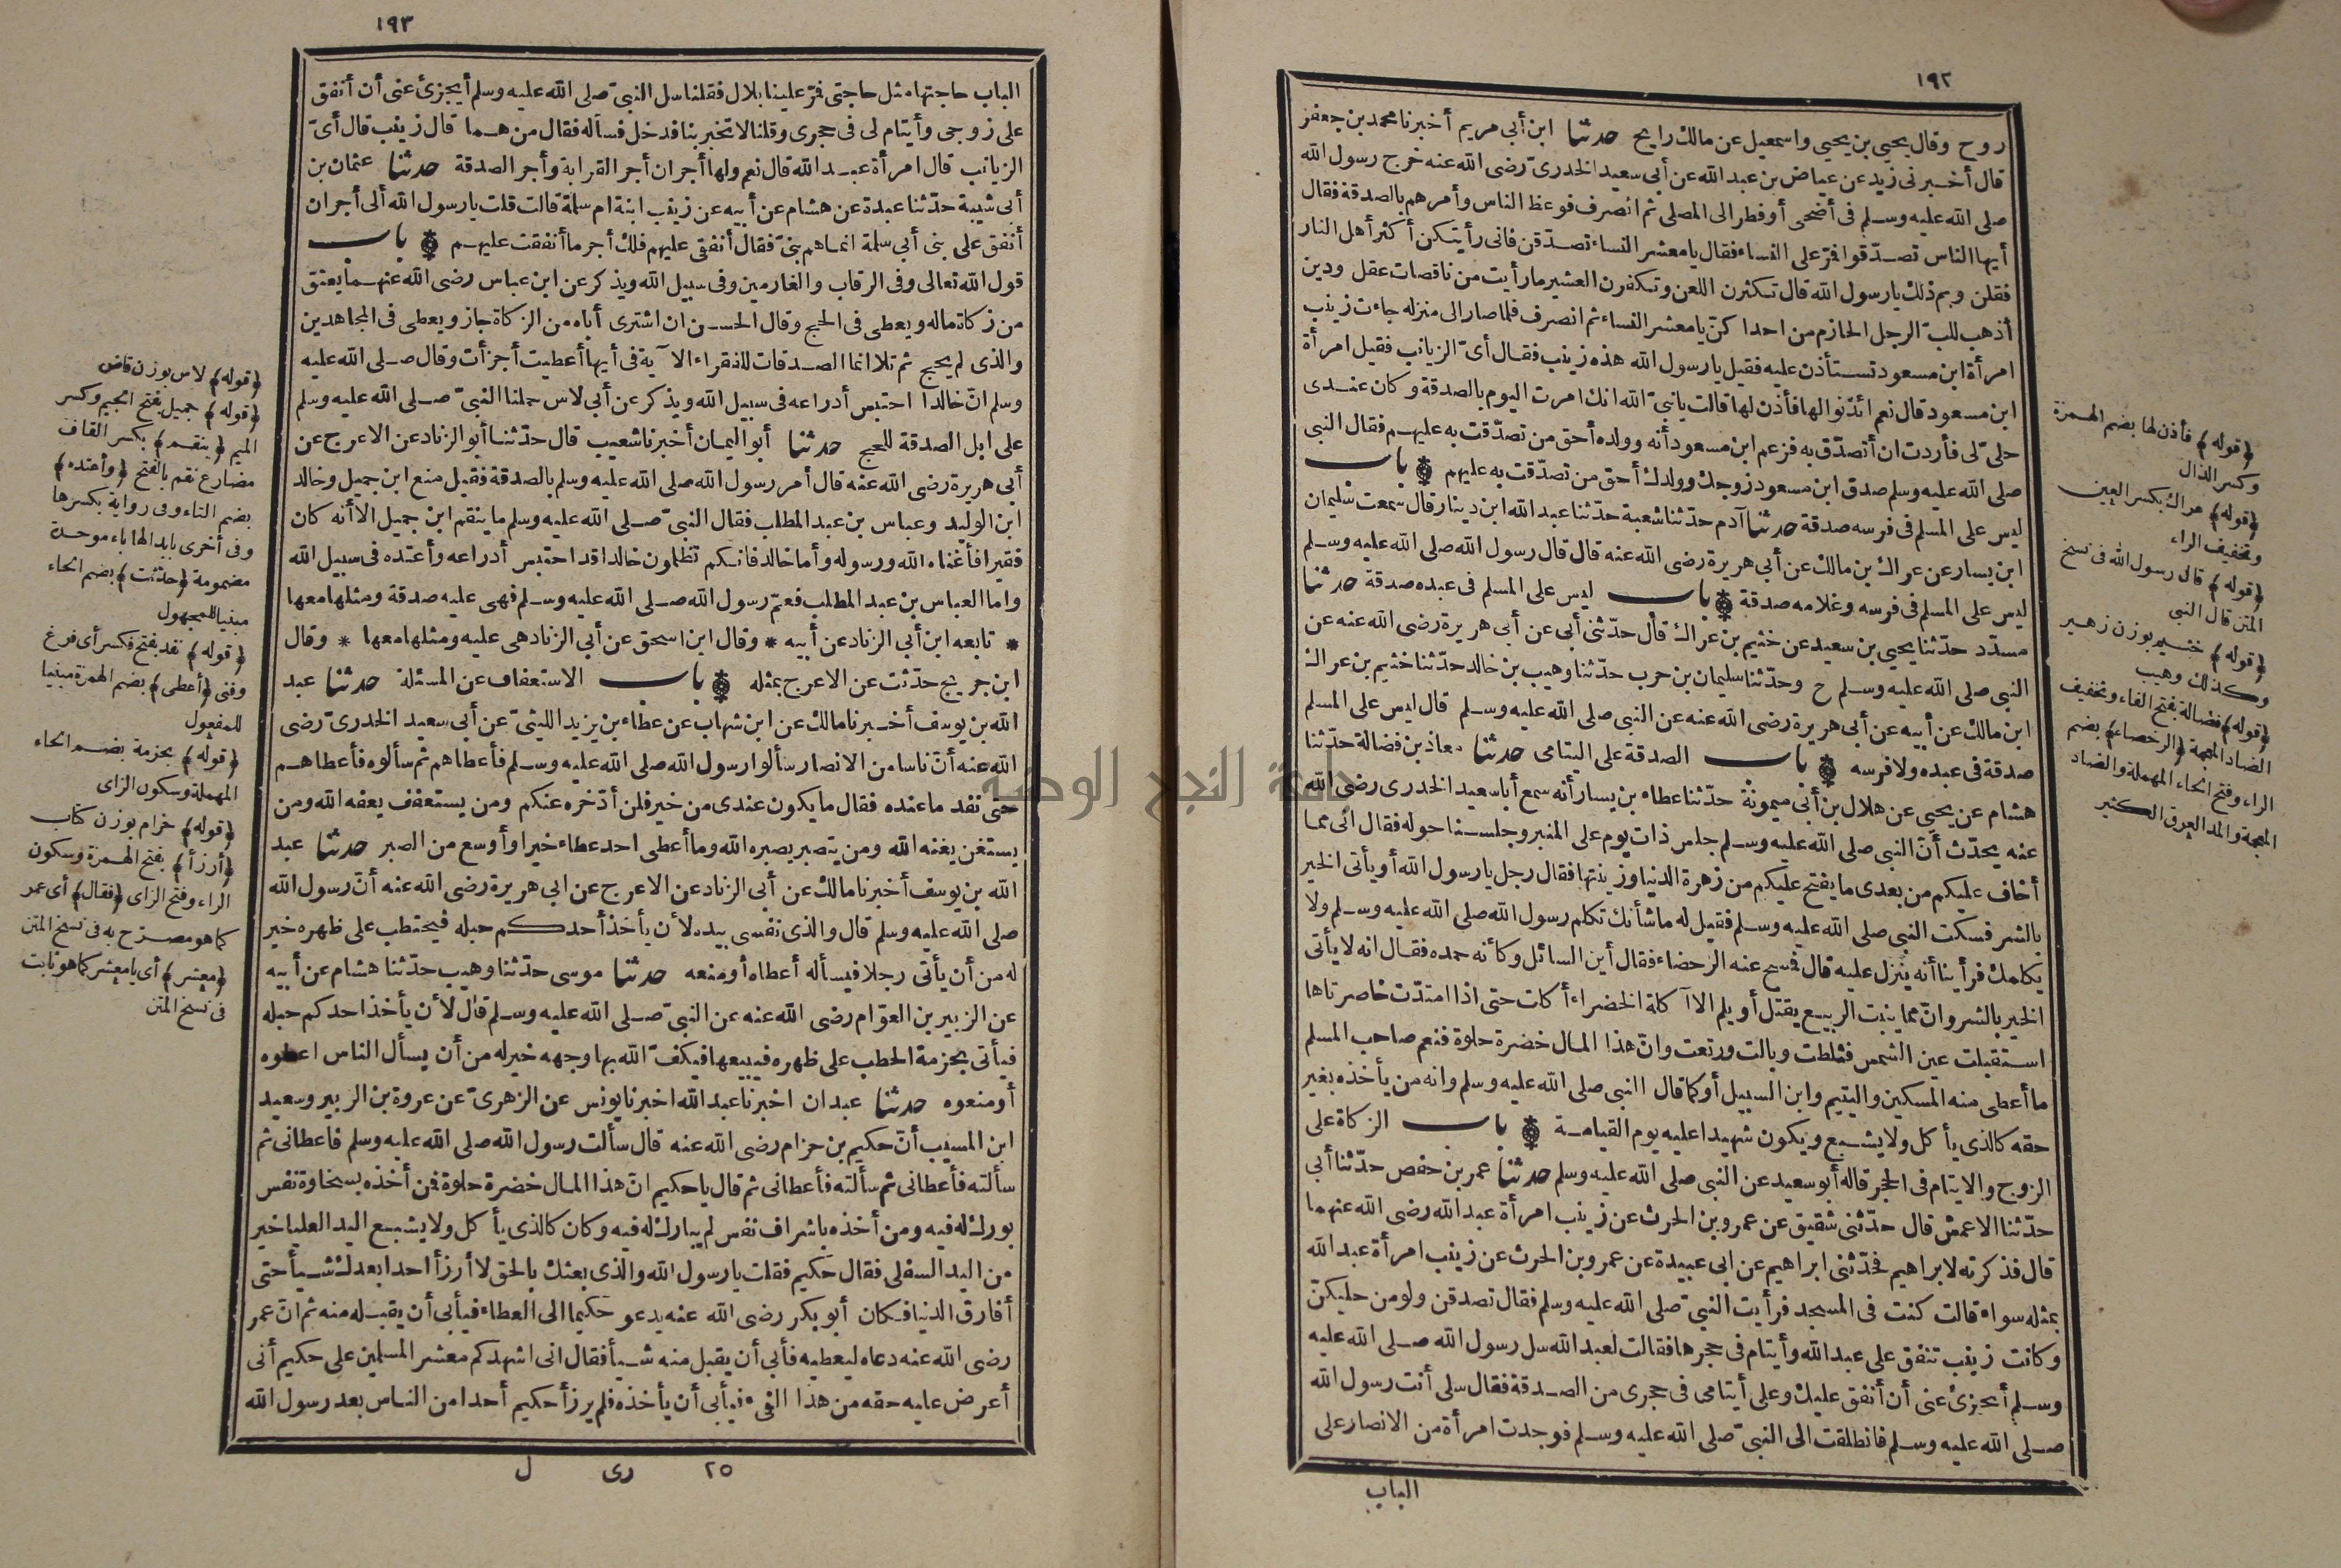 ١٩٢
روح وقال يحيى بن يحيى واسمعيل عن مالك رايح حدثنا ابن أبى مريم أخبرنا محمد بن جعفر
قال أخبرنى زيد عن عياض بن عبد الله عن أبى سعيد الخدرىّ رضى الله عنه خرج رسول الله
صلى الله عليه وسلم فى أضحى أو فطر الى المصلى ثم انصرف فوعظ الناس وأمرهم بالصدقة فقال
أيها الناس تصدّقوا فمرّ على النساء فقال يا معشر النساء تصدّقن فانى رأيتكن أكثر أهل النار
فقلن وبم ذلك يا رسول الله قال تكثرن اللعن وتكفرن العشير ما رأيت من ناقصات عقل ودين
أذهب للبّ الرجل الحازم من احداكنّ يا معشر النساء ثم انصرف فلما صار الى منزله جاءت زينب
امرأة ابن مسعود تستأذن عليه فقيل يا رسول الله هذه زينب فقال أىّ الزيانب فقيل امرأة
ابن مسعود قال نعم ائذنوا لها فأذن لها قالت يا نبىّ الله انك امرت اليوم بالصدقة وكان عندى
حلىّ لى فأردت ان أتصدّق به فزعم ابن مسعود أنه وولده أحق من تصدّقت به عليهم فقال النبى
صلى الله عليه وسلم صدق ابن مسعود زوجك وولدك أحق من تصدّقت به عليهم باب
ليس على المسلم فى فرسه صدقة حدثنا آدم حدّثنا شعبة حدّثنا عبد الله ابن دينار قال سمعت سليمان
ابن يسار عن عراك بن مالك عن أبى هريرة رضى الله عنه قال قال رسول الله صلى الله عليه وسلم
ليس على المسلم فى فرسه وغلامه صدقة باب ليس على المسلم فى عبده صدقة حدثنا
مسدّد حدّثنا يحيى بن سعيد عن خثيم بن عراك قال حدّثنى أبى عن أبى هريرة رضى الله عنه عن
النبى صلى الله عليه وسلم ح وحدّثنا سليمان بن حرب حدّثنا وهيب بن خالد حدّثنا خثيم بن عراك
ابن مالك عن أبيه عن أبى هريرة رضى الله عنه عن النبى صلى الله عليه وسلم قال ليس على المسلم
صدقة فى عبده ولا فرسه باب الصدقة على اليتامى حدثنا معاذ بن فضالة حدّثنا
هشام عن يحيى عن هلال بن أبى ميمونة حدّثنا عطاء بن يسار أنه سمع أبا سعيد الخدرى رضى الله
عنه يحدّث أنّ النبى صلى الله عليه وسلم جلس ذات يوم على المنبر وجلسنا حوله فقال انى مما
أخاف عليكم من بعدى ما يفتح عليكم من زهرة الدنيا وزينتها فقال رجل يا رسول الله أو يأتى الخير
بالشر فسكت النبى صلى الله عليه وسلم فقيل له ما شأنك تكلم رسول الله صلى الله عليه وسلم ولا
يكلمك فرأينا أنه ينزل عليه قال فمسح عنه الرحضاء فقال أين السائل وكأنه حمده فقال انه لا يأتى
الخير بالشر وانّ مما ينبت الربيع يقتل أو يلم الا آكلة الخضراء أكلت حتى اذا امتدّت خاصرتاها
استقبلت عين الشمس فثلطت وبالت ورتعت وانّ هذا المال خضرة حلوة فنعم صاحب المسلم
ما أعطى منه المسكين واليتيم وابن السبيل أو كما قال النبى صلى الله عليه وسلم وانه من يأخذه بغير
حقه كالذى يأكل ولا يشبع ويكون شهيدا عليه يوم القيامة باب الزكاة على
الزوج والايتام فى الحجر قاله أبو سعيد عن النبى صلى الله عليه وسلم حدثنا عمر بن حفص حدّثنا أبى
حدّثنا الاعمش قال حدّثنى شقيق عن عمرو بن الحرث عن زينب امرأة عبد الله رضى الله عنهما
قال فذكرته لابراهيم فحدّثنى ابراهيم عن ابى عبيدة عن عمرو بن الحرث عن زينب امرأة عبد الله
بمثله سواء قالت كنت فى المسجد فرأيت النبىّ صلى الله عليه وسلم فقال تصدقن ولو من حليكنّ
وكانت زينب تنفق على عبد الله وأيتام فى حجرها فقالت لعبد الله سل رسول الله صلى الله عليه
وسلم أيجزئ عنى أن أنفق عليك وعلى أيتامى فى حجرى من الصدقة فقال سلى أنت رسول الله
صلى الله عليه وسلم فانطلقت الى النبىّ صلى الله عليه وسلم فوجدت امرأة من الانصار على
الباب
﴿قوله﴾ فأذن لها بضم الهمزة
وكسر الذال
﴿قوله﴾ عراك بكسر العين
وتخفيف الراء
﴿قوله﴾ قال رسول الله فى نسخ
المتن قال النبى
﴿قوله﴾ خثيم بوزن زهير
وكذلك وهيب
﴿قوله﴾ فضالة بفتح الفاء وتخفيف
الضاد المعجمة ﴿الرحضاء﴾ بضم
الراء وفتح الحاء المهملة والضاد
المعجمة والمد العرق الكثير
١٩٣
الباب حاجتها مثل حاجتى فمرّ علينا بلال فقلنا سل النبىّ صلى الله عليه وسلم أيجزئ عنى أن أنفق
على زوجى وأيتام لى فى حجرى وقلنا لا تخبر بنا فدخل فسأله فقال من هما قال زينب قال أىّ
الزيانب قال امرأة عبد الله قال نعم ولها أجران أجر القرابة وأجر الصدقة حدثنا عثمان بن
أبى شيبة حدّثنا عبدة عن هشام عن أبيه عن زينب ابنة ام سلمة قالت قلت يا رسول الله ألى أجر ان
أنفق على بنى أبى سلمة انما هم بنىّ فقال أنفقى عليهم فلك أجر ما أنفقت عليهم باب
قول الله تعالى وفى الرقاب والغارمين وفى سبيل الله ويذكر عن ابن عباس رضى الله عنهما يعتق
من زكاة ماله ويعطى فى الحج وقال الحسن ان اشترى أباه من الزكاة جاز ويعطى فى المجاهدين
والذى لم يحج ثم تلا انما الصدقات للفقراء الآية فى أيها أعطيت أجزأت وقال صلى الله عليه
وسلم انّ خالدا احتبس أدراعه فى سبيل الله ويذكر عن أبى لاس حملنا النبىّ صلى الله عليه وسلم
على ابل الصدقة للحج حدثنا أبو اليمان أخبرنا شعيب قال حدّثنا أبو الزناد عن الاعرج عن
أبى هريرة رضى الله عنه قال أمر رسول الله صلى الله عليه وسلم بالصدقة فقيل منع ابن جميل وخالد
ابن الوليد وعباس بن عبد المطلب فقال النبىّ صلى الله عليه وسلم ما ينقم ابن جميل الا أنه كان
فقيرا فأغناه الله ورسوله وأما خالد فانكم تظلمون خالدا قد احتبس أدراعه وأعتده فى سبيل الله
واما العباس بن عبد المطلب فعمّ رسول الله صلى الله عليه وسلم فهى عليه صدقة ومثلها معها
* تابعه ابن أبى الزناد عن أبيه * وقال ابن اسحق عن أبى الزناد هى عليه ومثلها معها * وقال
ابن جريج حدّثت عن الاعرج بمثله باب الاستعفاف عن المسئلة حدثنا عبد
الله بن يوسف أخبرنا مالك عن ابن شهاب عن عطاء بن يزيد الليثىّ عن أبى سعيد الخدرىّ رضى
الله عنه أنّ ناسا من الانصار سألوا رسول الله صلى الله عليه وسلم فأعطاهم ثم سألوه فأعطاهم
حتى نفد ما عنده فقال ما يكون عندى من خير فلن أدّخره عنكم ومن يستعفف يعفه الله ومن
يستغن يغنه الله ومن يتصبر يصبره الله وما أعطى احد عطاء خيرا وأوسع من الصبر حدثنا عبد
الله بن يوسف أخبرنا مالك عن أبى الزناد عن الاعرج عن ابى هريرة رضى الله عنه أنّ رسول الله
صلى الله عليه وسلم قال والذى نفسى بيده لأن يأخذ أحدكم حبله فيحتطب على ظهره خير
له من أن يأتى رجلا فيسأله أعطاه أو منعه حدثنا موسى حدّثنا وهيب حدّثنا هشام عن أبيه
عن الزبير بن العوّام رضى الله عنه عن النبىّ صلى الله عليه وسلم قال لأن يأخذ احدكم حبله
فيأتى بحزمة الحطب على ظهره فيبيعها فيكفّ الله بها وجهه خير له من أن يسأل الناس اعطوه
أو منعوه حدثنا عبدان اخبرنا عبد الله اخبرنا يونس عن الزهرىّ عن عروة بن الزبير وسعيد
ابن المسيب أنّ حكيم بن حزام رضى الله عنه قال سألت رسول الله صلى الله عليه وسلم فاعطانى ثم
سألته فأعطانى ثم سألته فأعطانى ثم قال يا حكيم انّ هذا المال خضرة حلوة فمن أخذه بسخاوة نفس
بورك له فيه ومن أخذه باشراف نفس لم يبارك له فيه وكان كالذى يأكل ولا يشبع اليد العليا خير
من اليد السفلى فقال حكيم فقلت يا رسول الله والذى بعثك بالحق لا أرزأ احدا بعدك شيأ حتى
أفارق الدنيا فكان أبو بكر رضى الله عنه يدعو حكيما الى العطاء فيأبى أن يقبله منه ثم انّ عمر
رضى الله عنه دعاه ليعطيه فأبى أن يقبل منه شيأ فقال انى اشهدكم معشر المسلمين على حكيم أنى
أعرض عليه حقه من هذا الفىء فيأبى أن يأخذه فلم يرزأ حكيم أحدا من الناس بعد رسول الله
٢٥ رى ل
﴿قوله﴾ لاس بوزن قاض
﴿قوله﴾ جميل بفتح الجيم وكسر
الميم ﴿ينقم﴾ بكسر القاف
مضارع نقم بالفتح ﴿وأعتده﴾
بضم التاء وفى رواية بكسرها
وفى أخرى بابدالها باء موحدة
مضمومة ﴿حدّثت﴾ بضم الحاء
مبنيا للمجهول
﴿قوله﴾ نفد بفتح فكسر أى فرغ
وفنى ﴿أعطى﴾ بضم الهمزة مبنيا
للمفعول
﴿قوله﴾ بحزمة بضم الحاء
المهملة وسكون الزاى
﴿قوله﴾ حزام بوزن كتاب
﴿أرزأ﴾ بفتح الهمزة وسكون
الراء وفتح الزاى ﴿فقال﴾ أى عمر
كما هو مصرّح به فى نسخ المتن
﴿معشر﴾ أى يا معشر كما هو ثابت
فى نسخ المتن
جامعة النجاح الوطنية